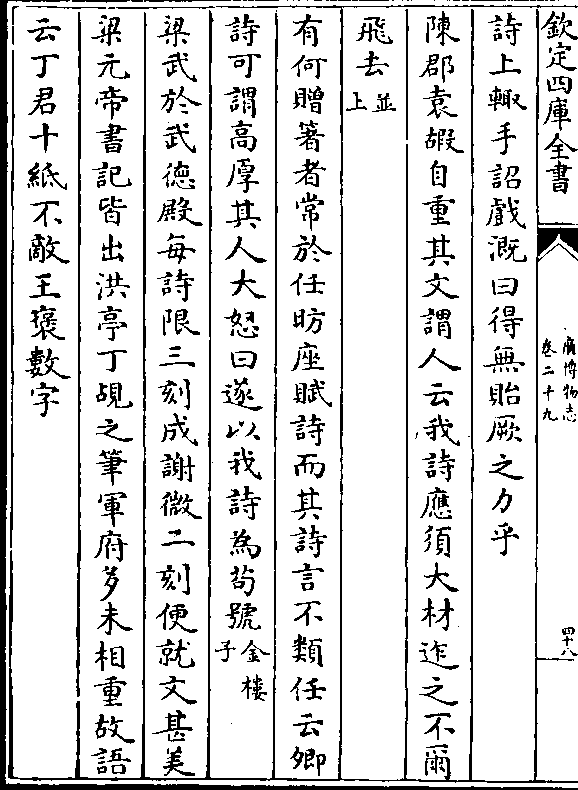 欽定四庫全書
廣博物志
卷二十九
四十八
詩上輙手詔戲溉曰得無貽厥之力乎
陳郡袁嘏自重其文謂人云我詩應須大材迮之不爾
飛去並上
有何贈箸者常於任昉座賦詩而其詩言不類任云卿
詩可謂高厚其人大怒曰遂以我詩為茍號金樓子
梁武於武德殿每詩限三刻成謝微二刻便就文甚美
梁元帝書記皆出洪亭丁覘之筆軍府多未相重故語
云丁君十紙不敵王褒數字